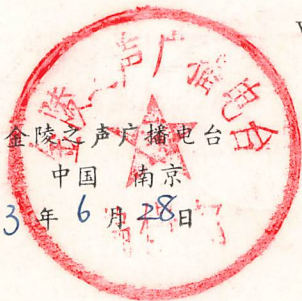 金陵之声广播电台
金陵之声广播电台
中国 南京
3年6月28日